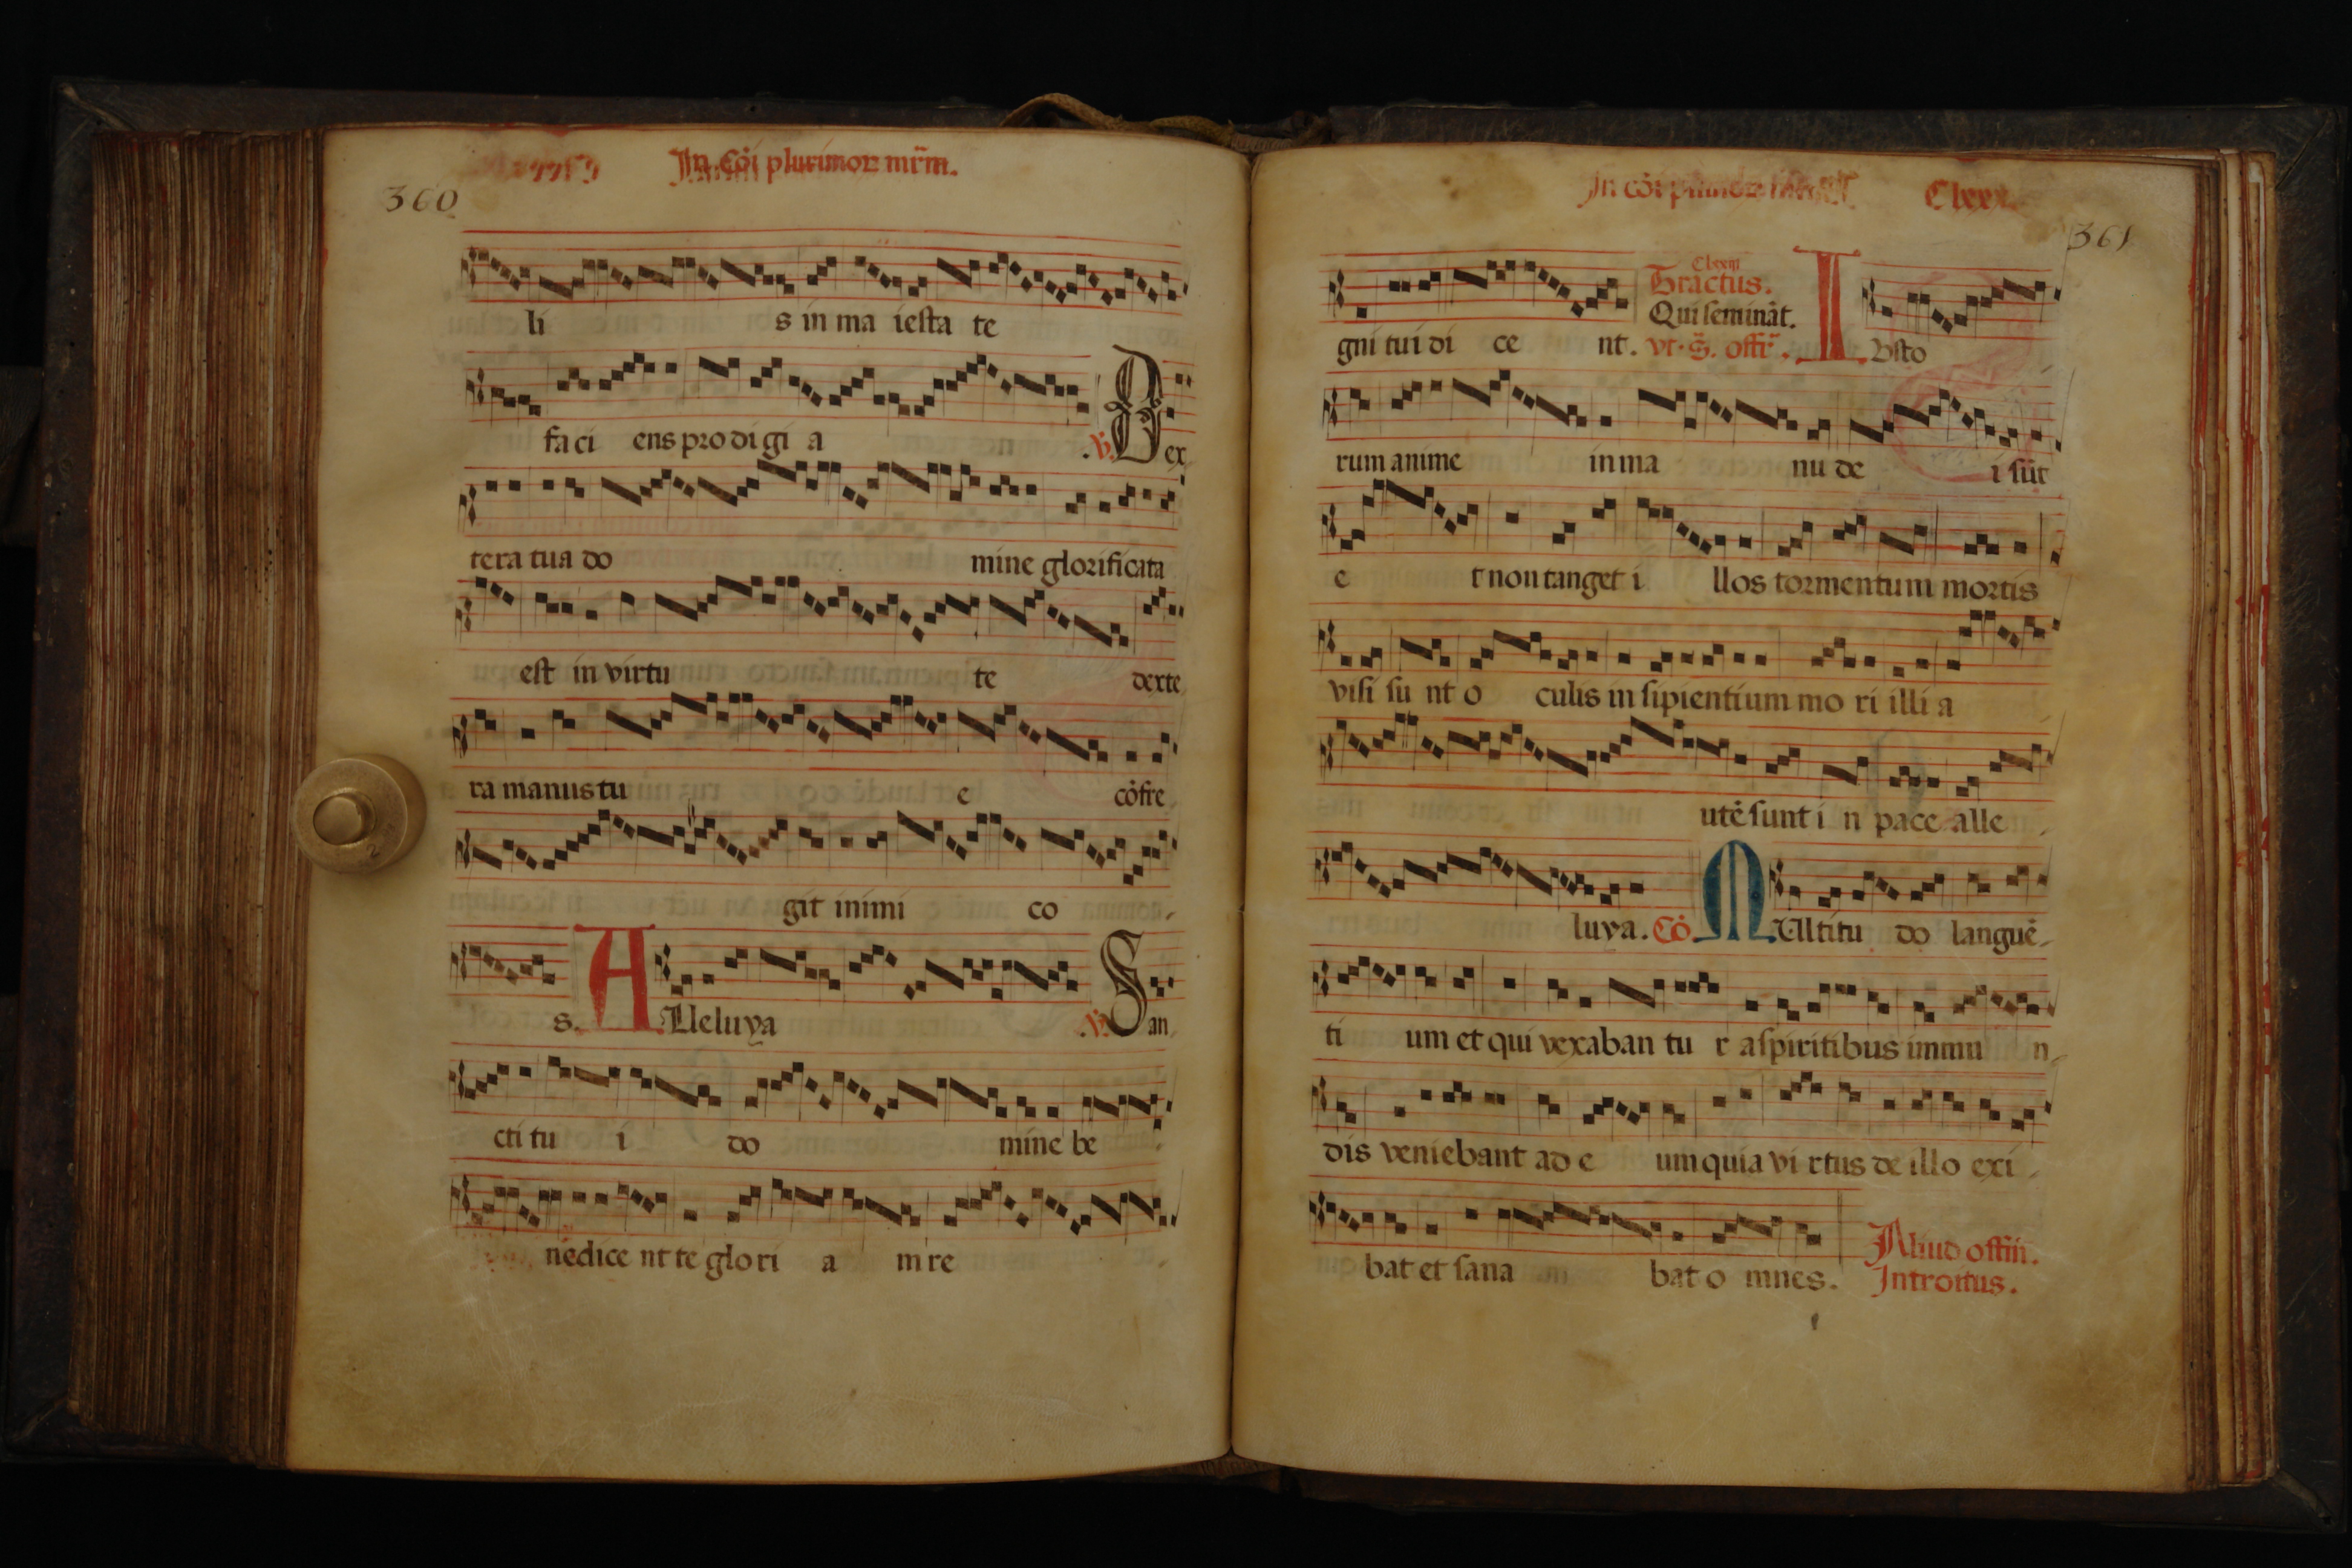 In cōi plurimoꝝ mr̄m.
360
li s in ma iesta te
fa ci ens pro di gi a . ℣. Dex
tera tua do mine glorificata
est in virtu te dexte
ra manus tu e cōfre
git inimi co
s. Alleluya . ℣. San
cti tu i do mine be
nedice nt te glo ri a m re
In cōi Clxx
361
gni tui di ce nt. Tractus. Clxxiii
Qui semināt.
vt. s̄. offr̄. Iusto
rum anime in ma nu de i sūt
e t non tanget i llos tormentum mortis
visi su nt o culis insipientium mo ri illi a
utē sunt i n pace alle
luya. Cō. Multitu do languē
ti um et qui vexaban tu r a spiritibus immu n
dis veniebant ad e um quia vi rtus de illo exi
bat et sana bat o mnes. Aliud offm̄.
Introitus.